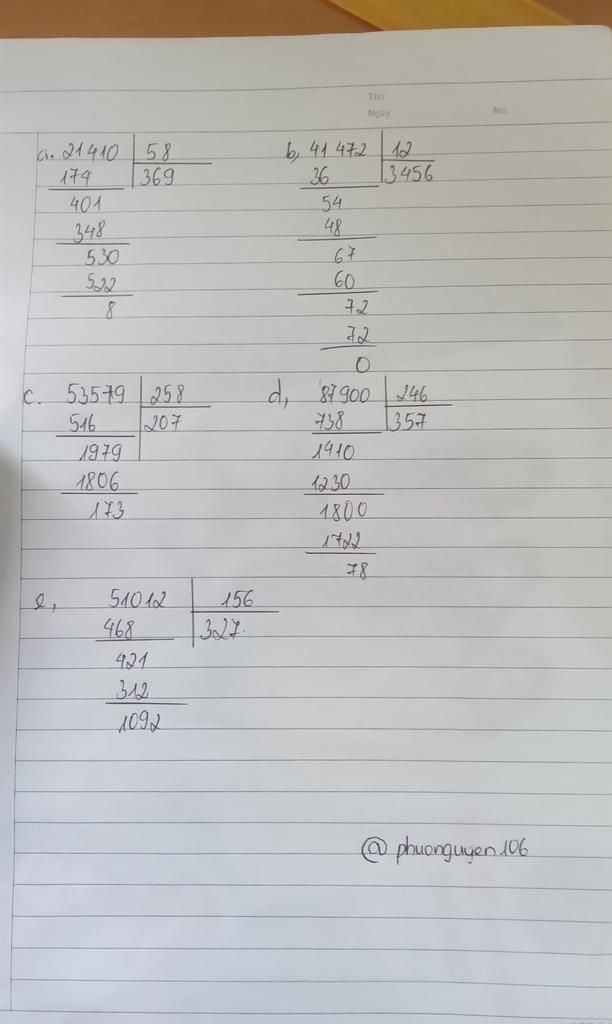 Thứ
Ngày No.
a. 21410 58
174 369
401
348
530
522
8
b, 41 472 12
36 3456
54
48
67
60
72
72
0
c. 53579 258
516 207
1979
1806
173
d, 87900 246
738 357
1410
1230
1800
1722
78
e, 51012 156
468 327.
421
312
1092
@ phuonguyen106